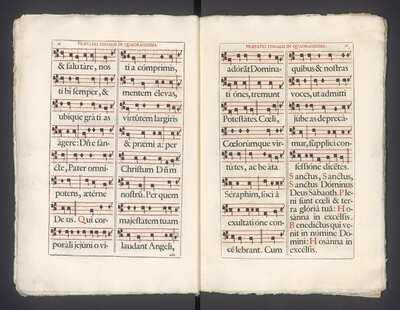 PRAEFATIO FERIALIS IN QUADRAGESIMA.
& salutáre, nos
tibi semper, &
ubique gratias
agere: Dñe san-
cte, Pater omni-
potens, ætérne
Deus. Qui cor-
porali jejunio vi-
tia comprimis,
mentem élevas,
virtútem largíris
& præmia: per
Christum Dñm
nostrũ. Per quem
majestatem tuam
laudant Angeli,
PRAEFATIO FERIALIS IN QUADRAGESIMA.
adórãt Domina-
tiónes, tremunt
Potestátes. Cœli,
Cœlorúmque vir-
tútes, ac beáta
Séraphim, sociâ
exultatióne con-
célebrant. Cum
quibus & nostras
voces, ut admitti
jubeas depreca-
mur, supplici con-
fessióne dicétes.
Sanctus, Sanctus,
Sanctus Dóminus
Deus Sábaoth. Ple-
ni sunt cœli & ter-
ra glóriâ tuâ: Ho-
sánna in excélsis.
Benedictus qui ve-
nit in nómine Dó-
mini: Hosánna in
excélsis.